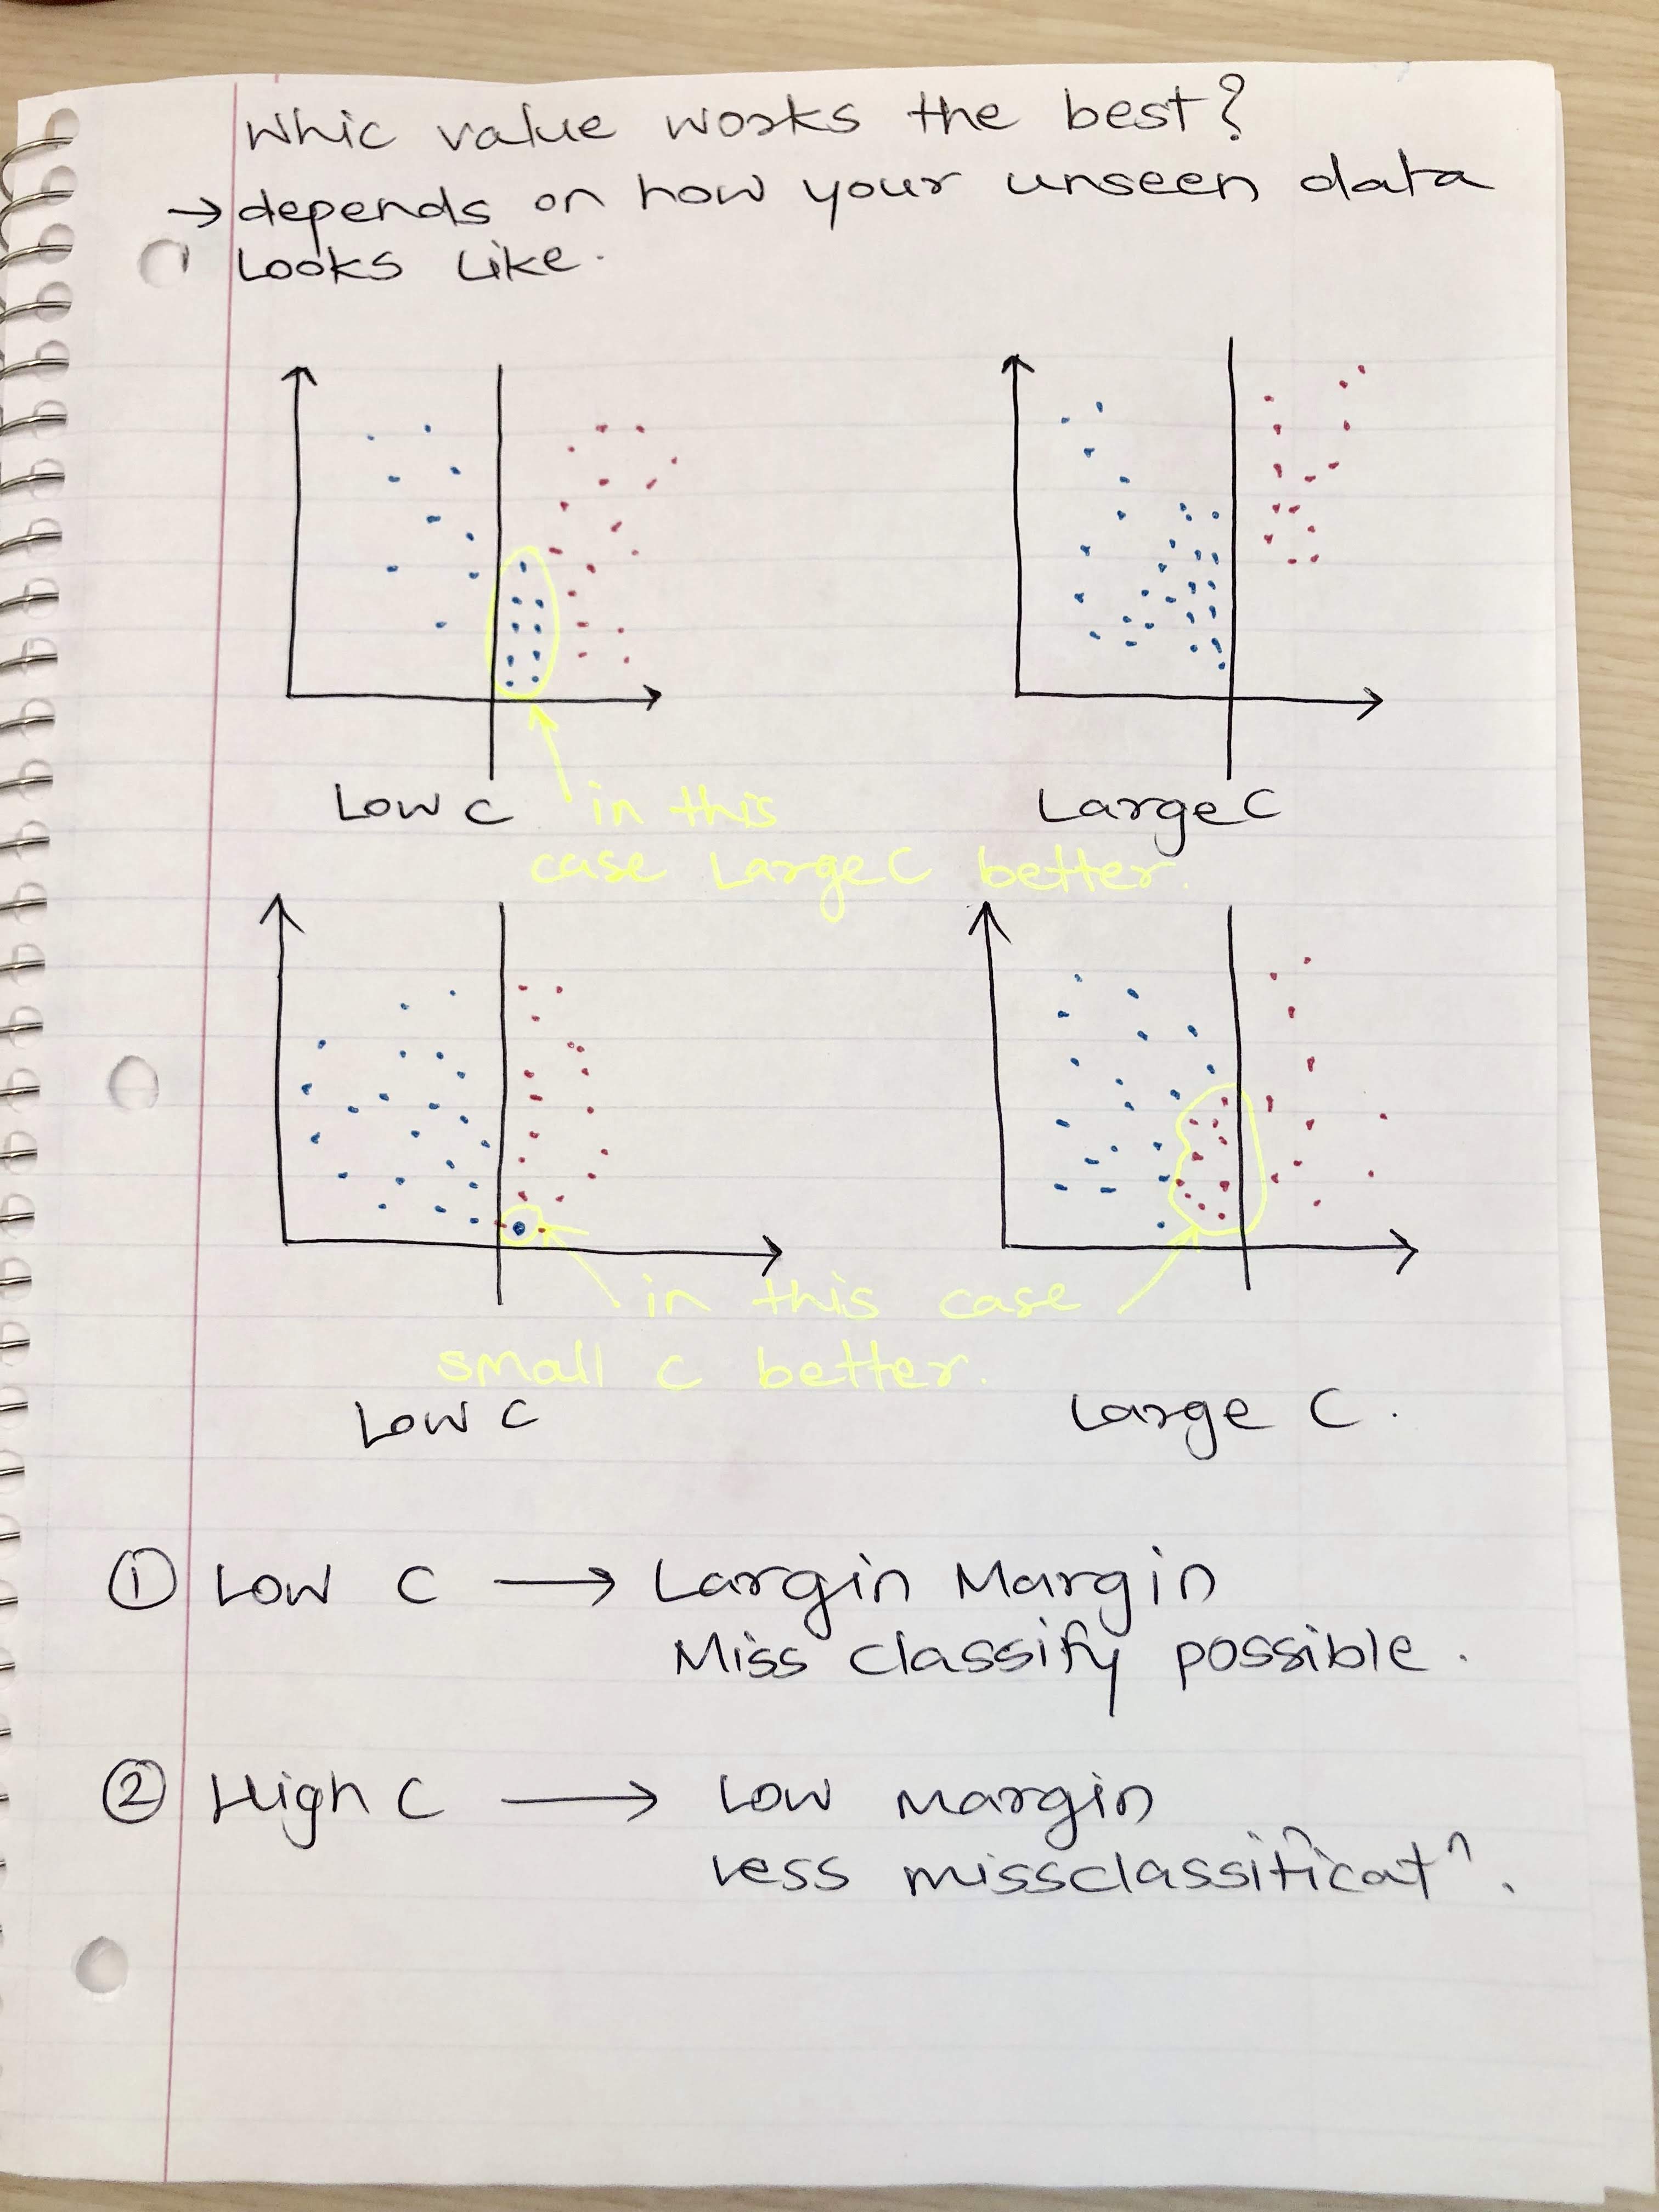 Whic value works the best?
→ depends on how your unseen data
Looks Like.
Low C
Large C
in this
case Large C better.
in this case
small C better.
Low C
Large C.
① Low C → Largin Margin
Miss classify possible.
② High C → Low Margin
Less missclassificatⁿ.